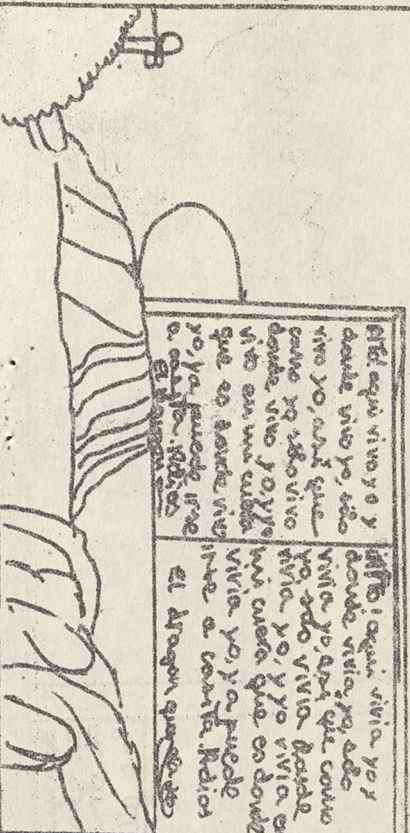 aqui vivo yo y
donde vivo yo, sólo
vivo yo, así que
como yo sólo vivo
donde vivo yo, y yo
vivo en mi cueva
que es donde vivo
yo, ya puede irse
a casita. Adios
El dragón
aqui vivia yo y
donde vivia yo, solo
vivia yo, así que como
yo, solo vivia donde
vivia yo, y yo vivia en
mi cueva que es donde
vivia yo, ya puede
irse a casita. Adios
El dragon que